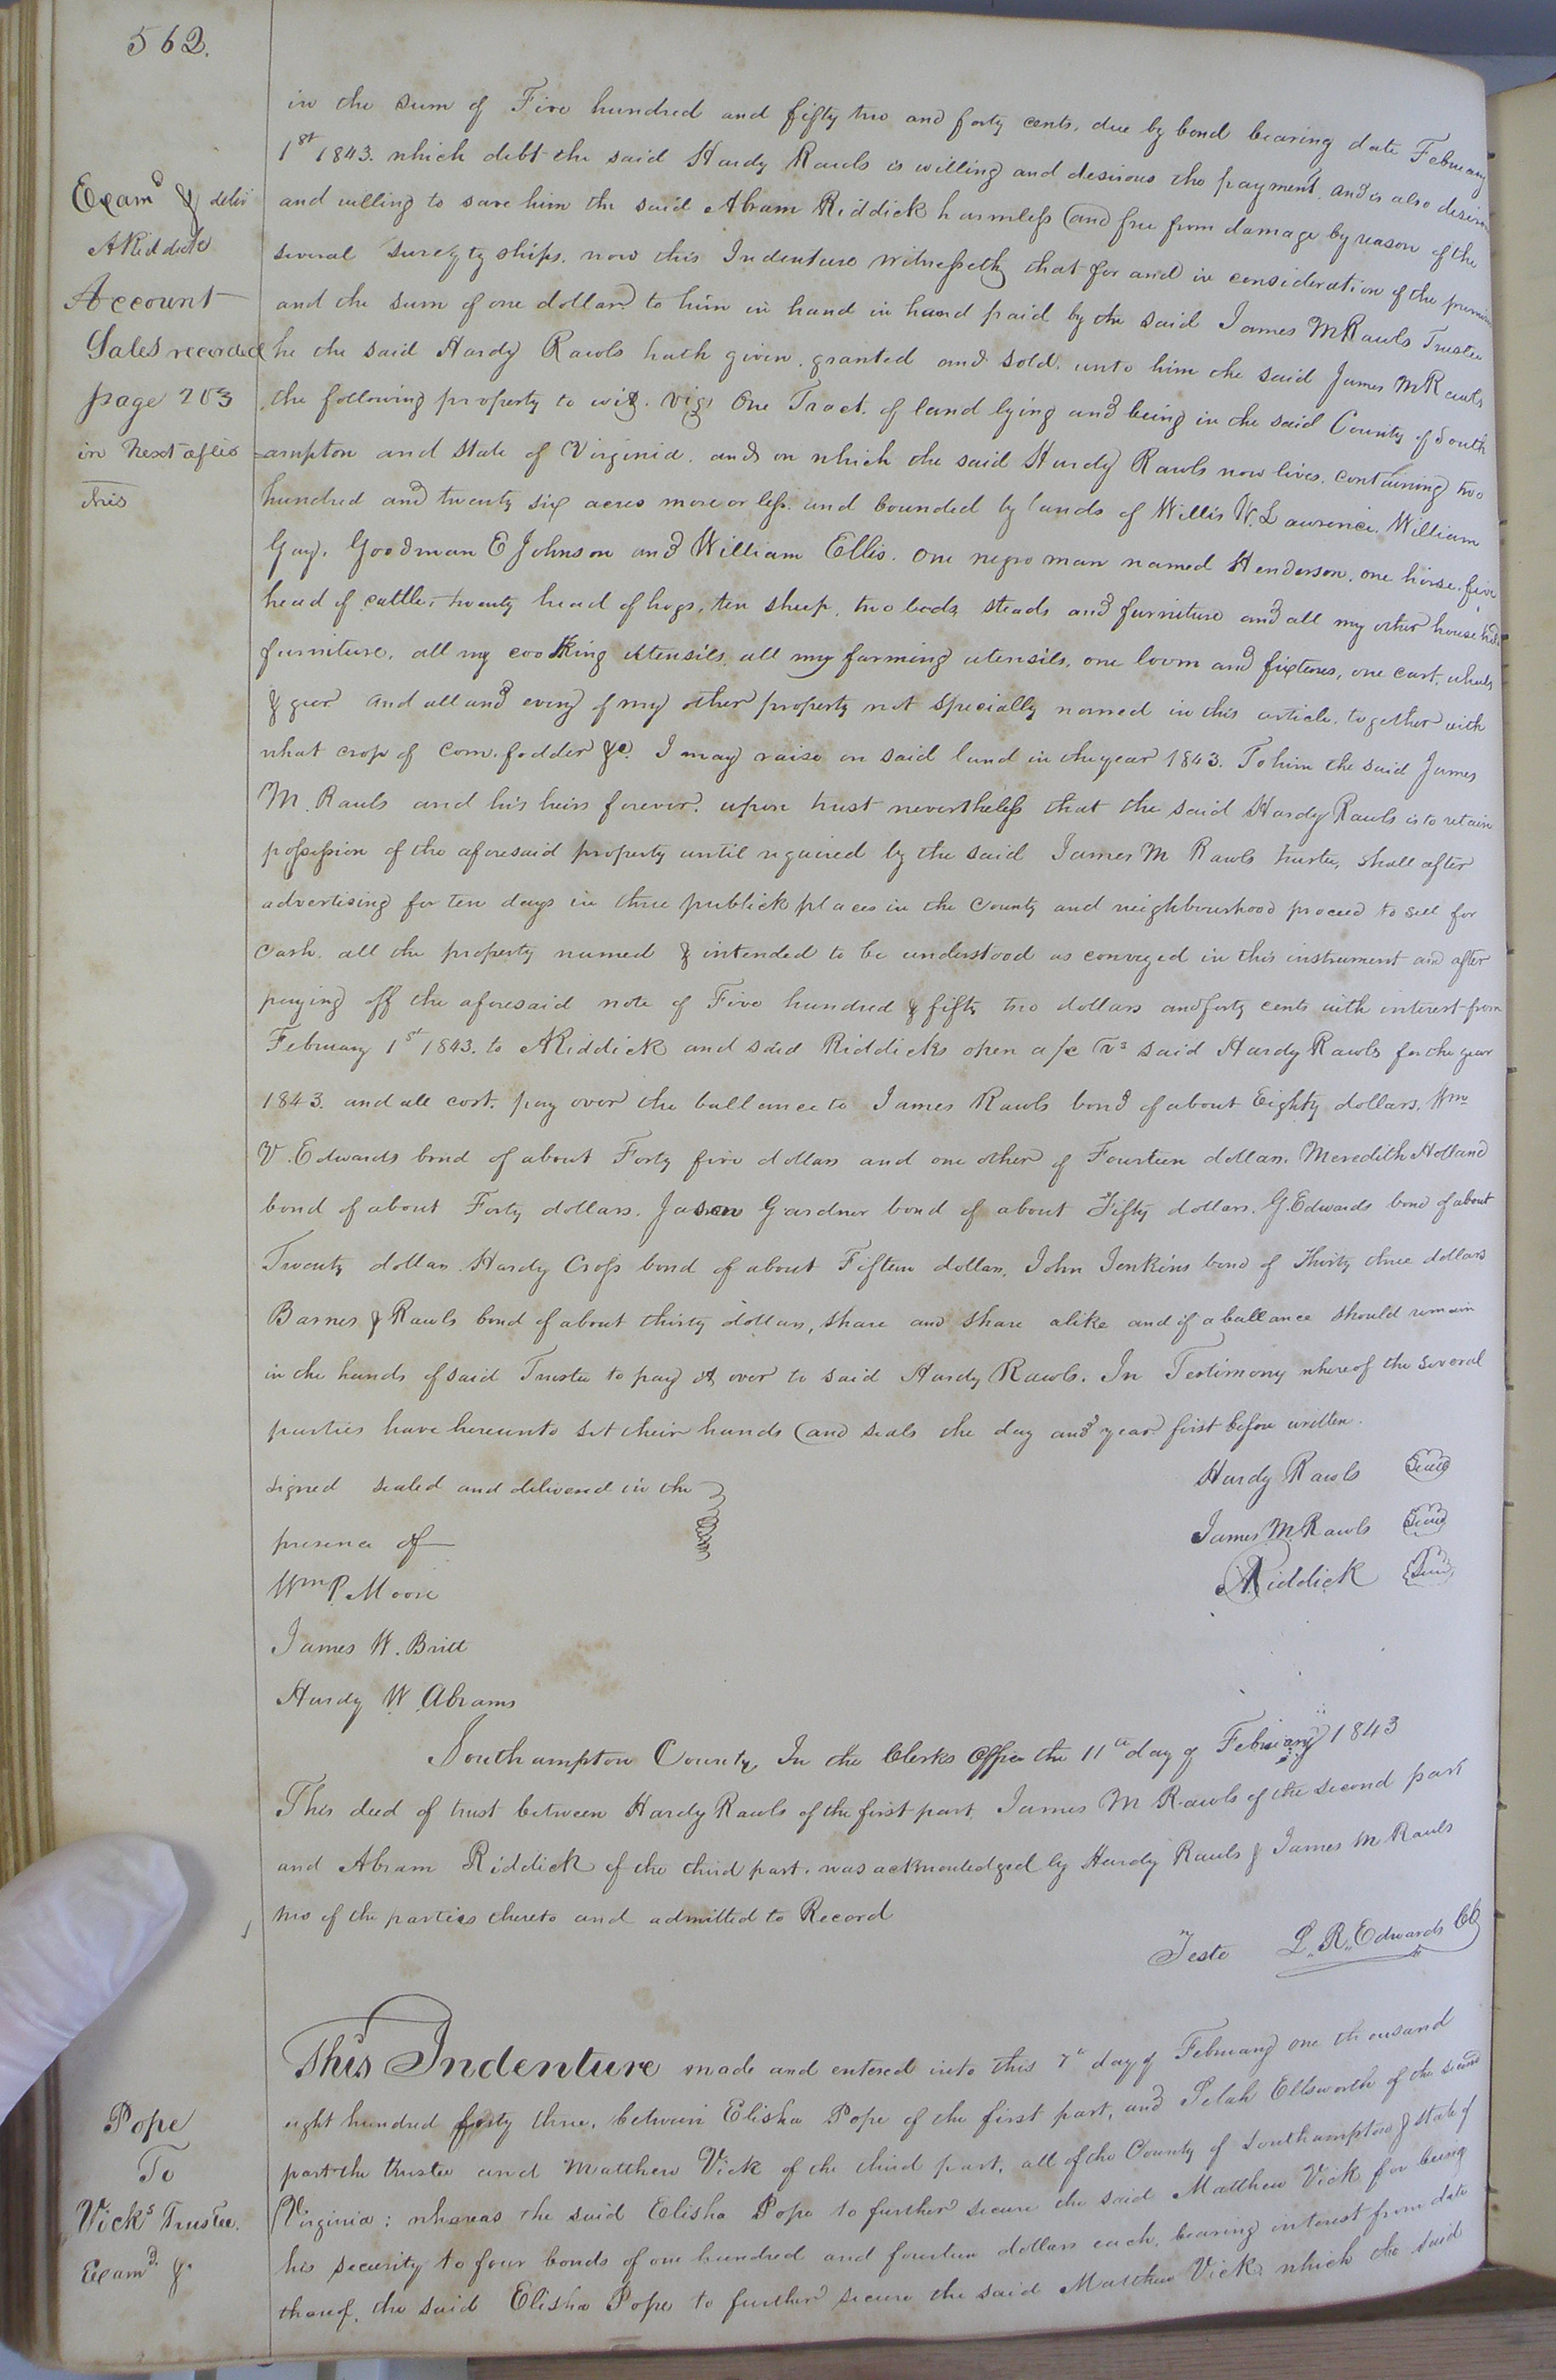 562.
in the sum of Five hundred and fifty two and forty cents, due by bond bearing date February
1st 1843. which debt the said Hardy Rawls is willing and desirous the payment, and is also desirous
and willing to save him the said Abram Riddick harmless and free from damage by reason of the
several suretyships. now this Indenture witnesseth that for and in consideration of the premises
and the sum of one dollar to him in hand in hand paid by the said James M Rawls Trustee
he the said Hardy Rawls hath given. granted and sold. unto him the said James M Rawls
the following property to wit. viz, One Tract. of land lying and being in the said County of South
=ampton and State of Virginia. and on which the said Hardy Rawls now lives. containing two
hundred and twenty six acres more or less. and bounded by lands of Willis W. Lawrence. William
Gay. Goodman E Johnson and William Ellis. One negro man named Henderson, one horse, five
head of cattle, twenty head of hogs, ten sheep, two beds, steads and furniture and all my other household
furniture, all my cooking utensils, all my farming utensils, one loom and fixtures, one cart, wheels
& gear and all and every of my other property not specially named in this article. together with
what crop of corn. fodder &c. I may raise on said land in the year 1843. To him the said James
M. Rawls and his heirs forever. upon trust nevertheless that the said Hardy Rawls is to retain
possession of the aforesaid property until required by the said James M Rawls trustee, shall after
advertising for ten days in three publick places in the County and neighbourhood proceed to sell for
Cash. all the property named & intended to be understood as conveyed in this instrument and after
paying off the aforesaid note of Five hundred & fifty two dollars and forty cents with interest from
February 1st 1843. to A Riddick and said Riddicks open a/c vs said Hardy Rawls for the year
1843. and all cost. pay over the ballance to James Rawls bond of about Eighty dollars. Wm
V. Edwards bond of about Forty five dollars and one other of Fourteen dollars. Meredith Holland
bond of about Forty dollars. Jason Gardner bond of about Fifty dollars. G. Edwards bond of about
Twenty dollars Hardy Cross bond of about Fifteen dollars. John Jenkins bond of Thirty three dollars
Barnes & Rawls bond of about thirty dollars, share and share alike and if a ballance should remain
in the hands of said Trustee to pay it over to said Hardy Rawls. In Testimony whereof the several
parties have hereunto set their hands and seals the day and year first before written.
signed sealed and delivered in the
presence of
Wm P. Moore
James W. Britt
Hardy W. Abrams
Hardy Rawls Seal
James M Rawls Seal
A Riddick Seal
Southampton County, In the Clerks Office the 11th day of February 1843
This deed of trust between Hardy Rawls of the first part, James M Rawls of the second part
and Abram Riddick of the third part. was acknowledged by Hardy Rawls & James M Rawls
two of the parties thereto and admitted to Record
Teste L. R. Edwards CC
This Indenture made and entered into this 7th day of February one thousand
eight hundred forty three, between Elisha Pope of the first part, and Selah Ellsworth of the second
part the trustee and Matthew Vick of the third part, all of the County of Southampton & State of
Virginia: whereas the said Elisha Pope to further secure the said Matthew Vick for being
his security to four bonds of one hundred and fourteen dollars each, bearing interest from date
thereof, the said Elisha Pope to further secure the said Matthew Vick, which the said
Examd & deliv
A Riddick
Account
Sales recorded
page 203
in next after
this
Pope
To
Vicks Trustee.
Examd. &.